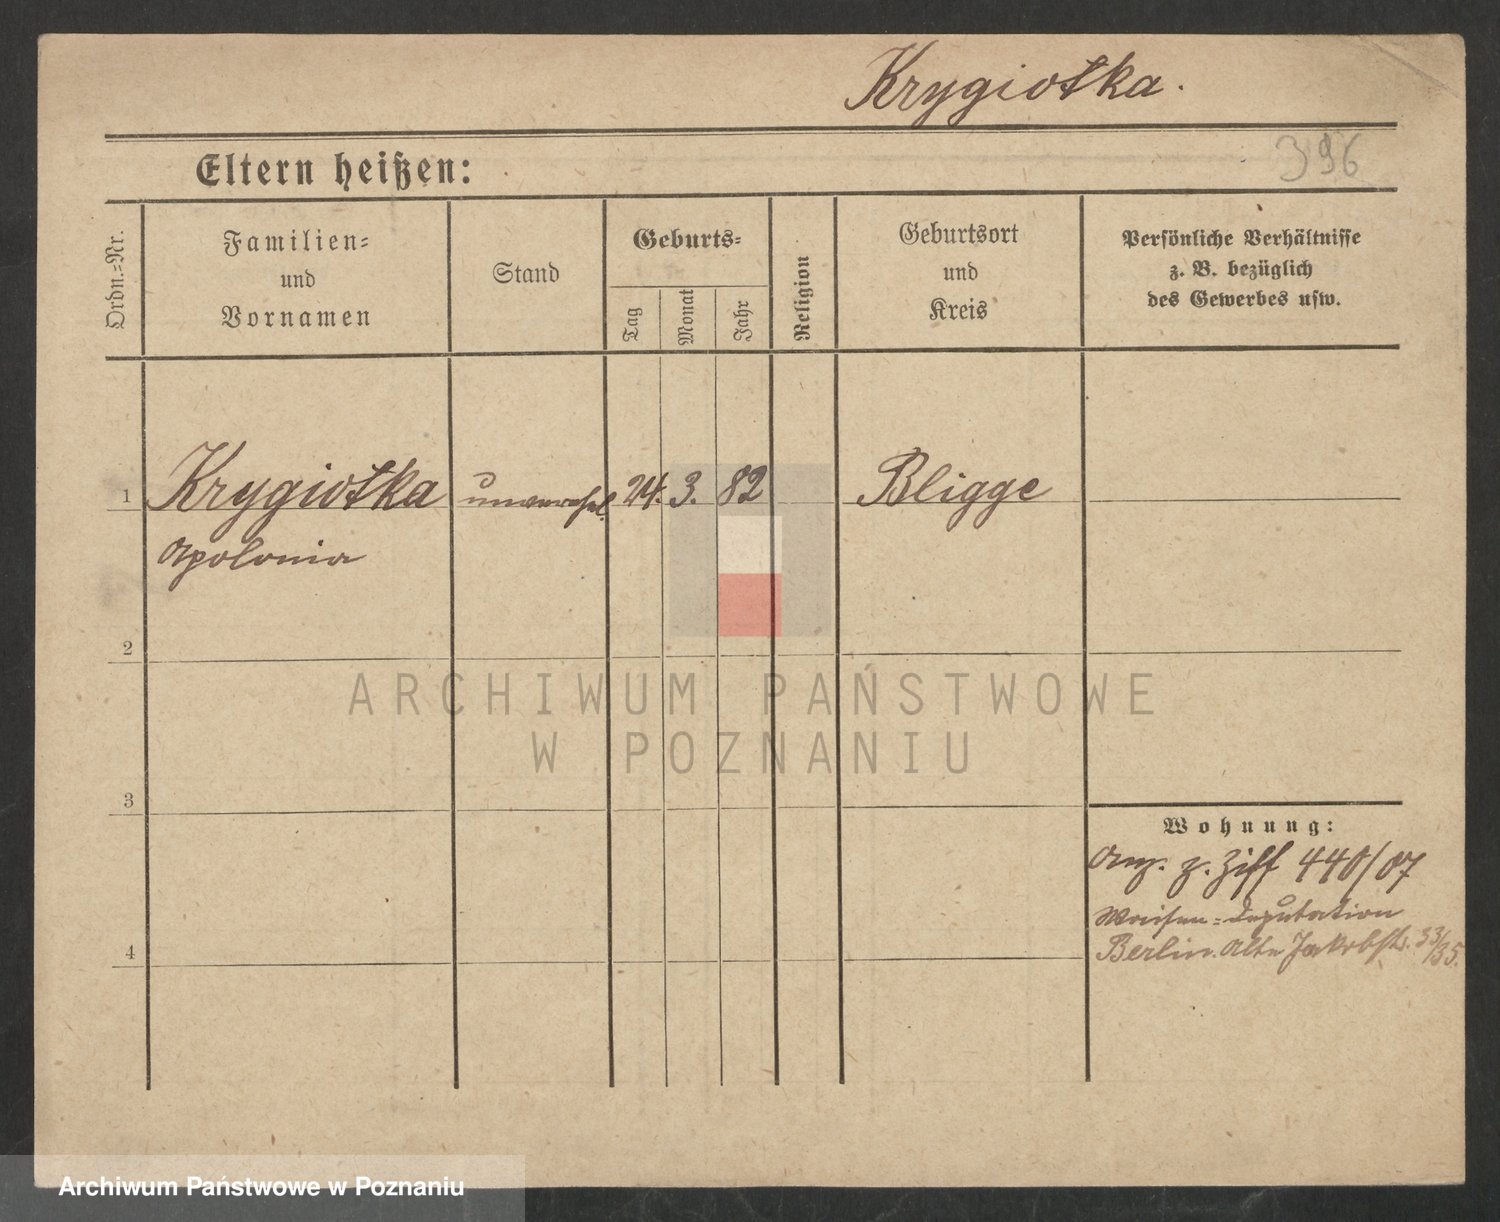 Krygiołka.
396
Eltern heißen:
Ordn.-Nr.
Familien-
und
Vornamen
Stand
Geburts-
Tag
Monat
Jahr
Religion
Geburtsort
und
Kreis
Persönliche Verhältnisse
z. B. bezüglich
des Gewerbes usw.
1 Krygiołka unverehel. 24. 3. 82 Bligge
Apolonia
2
ARCHIWUM PAŃSTWOWE
W POZNANIU
3
Wohnung:
Anz. z. Ziff 440/07
Waisen-Deputation
4
Berlin. Alte Jakobstr. 33/35.
Archiwum Państwowe w Poznaniu